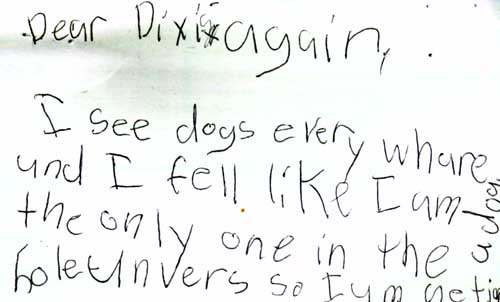 Dear Dixie again,
I see dogs every whare
and I fell like I am
the only one in the
hole Unvers so I am
a dog